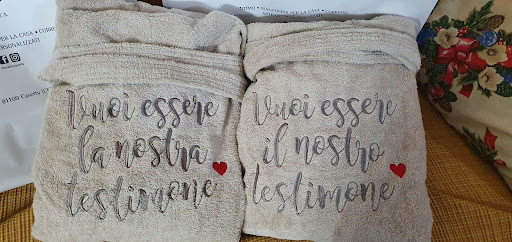 INTIMO • BIANCHERIA PER LA CASA • CORREDO
PER LA CASA • CORRE
PERSONALIZZATI
81100 Caserta
Vuoi essere
la nostra
testimone
Vuoi essere
il nostro
testimone